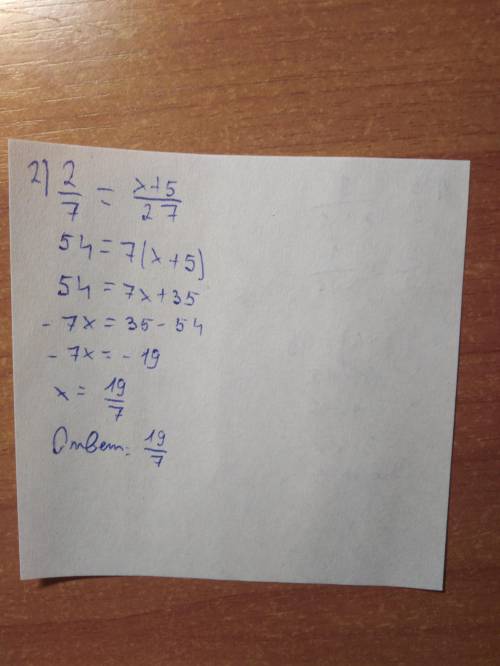 2) 2/7 = x+5/27
54 = 7(x+5)
54 = 7x+35
-7x = 35-54
-7x = -19
x = 19/7
Ответ: 19/7